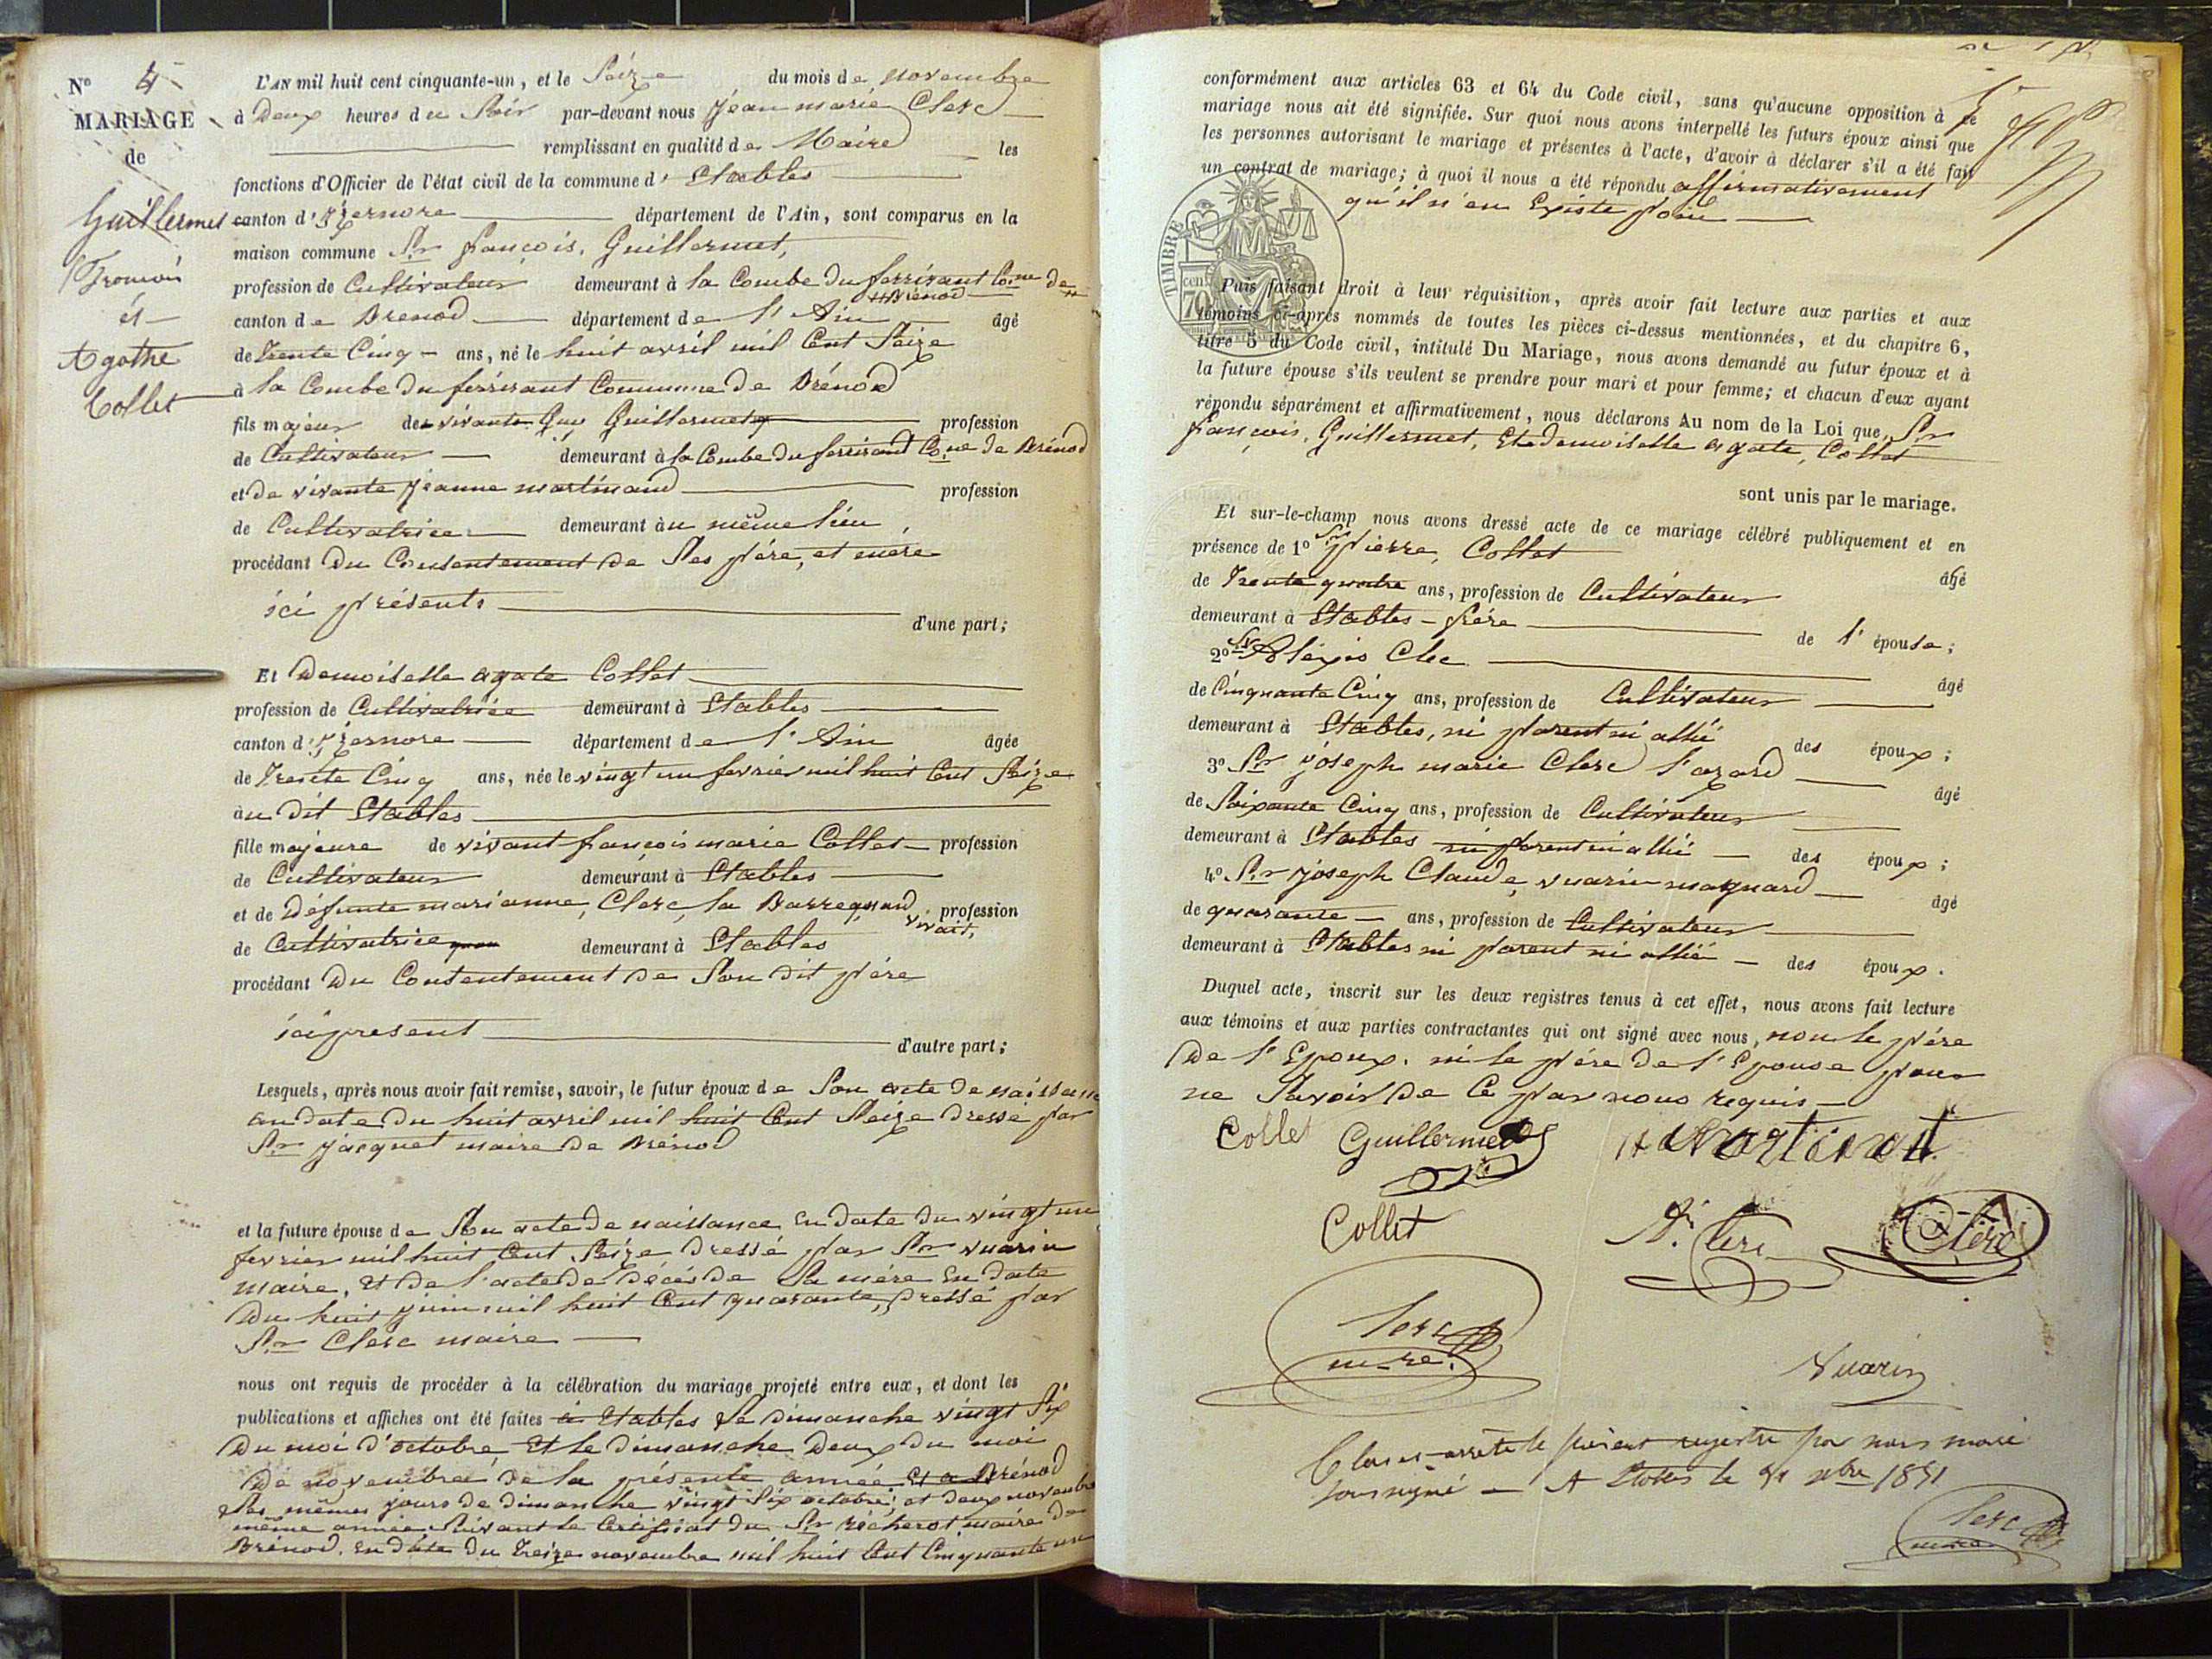 N° 4
MARIAGE
de
Guillermet
François
et
Agathe
Collet
L'AN mil huit cent cinquante-un, et le Seize du mois de novembre
à Deux heures du Soir par-devant nous Jean marie Clerc
remplissant en qualité de Maire les
fonctions d'Officier de l'état civil de la commune d' Etables
canton d'Izernore département de l'Ain, sont comparus en la
maison commune Sr françois, Guillermet,
profession de Cultivateur demeurant à la Combe du ferrirant Cone de
Brénod
canton de Brenod département de l'Ain âgé
de Trente Cinq ans, né le huit avril mil Cent Seize
à la Combe du ferrirant Commune de Brénod
fils majeur de vivante Guy Guillermet profession
de Cultivateur demeurant à la Combe du ferrirant Cone de Brénod
et de vivante Jeanne martinand profession
de Cultivatrice demeurant àu même lieu,
procédant du Consentement de Ses père, et mère
ici présents d'une part;
Et Demoiselle agate Collet
profession de Cultivatrice demeurant à Etables
canton d'Izernore département de l'Ain âgée
de Trente Cinq ans, née le vingt un fevrier mil huit Cent Seize
àu dit Etables
fille majeure de vivant françois marie Collet profession
de Cultivateur demeurant à Etables
et de Défunte marianne, Clerc, la Barre quand vivait, profession
de Cultivatrice demeurant à Etables
procédant du Consentement de Son dit père
ici present d'autre part;
Lesquels, après nous avoir fait remise, savoir, le futur époux de Son acte de naissance
en date du huit avril mil huit Cent Seize dressé par
Sr Jacquet maire de Brénod
et la future épouse de Son acte de naissance en date du vingt un
fevrier mil huit Cent Seize dressé par Sr vuarin
maire, et de l'acte de décès de Sa mère en date
du huit juin mil huit Cent quarante, dressé par
Sr Clerc maire
nous ont requis de procéder à la célébration du mariage projeté entre eux, et dont les
publications et affiches ont été faites à Etables le dimanche vingt Six
du moi d'octobre et le dimanche Deux du moi
de novembre de la présente année et a Brénod
les mêmes jours de dimanche vingt Six octobre, et deux novembre
même année Suivant le Certificat du Sr richerot maire de
Brénod. en date du Treize novembre mil huit Cent Cinquante un
conformément aux articles 63 et 64 du Code civil, sans qu'aucune opposition à ce
mariage nous ait été signifiée. Sur quoi nous avons interpellé les futurs époux ainsi que
les personnes autorisant le mariage et présentes à l'acte, d'avoir à déclarer s'il a été fait
un contrat de mariage; à quoi il nous a été répondu affirmativement
qu'il n'en Existe poin
TIMBRE
cen. 70
Puis faisant droit à leur réquisition, après avoir fait lecture aux parties et aux
témoins ci-après nommés de toutes les pièces ci-dessus mentionnées, et du chapitre 6,
titre 5 du Code civil, intitulé Du Mariage, nous avons demandé au futur époux et à
la future épouse s'ils veulent se prendre pour mari et pour femme; et chacun d'eux ayant
répondu séparément et affirmativement, nous déclarons Au nom de la Loi que, Sr
françois, Guillermet, Et demoiselle agate, Collet
sont unis par le mariage.
Et sur-le-champ nous avons dressé acte de ce mariage célébré publiquement et en
présence de 1° Sr pierre, Collet âgé
de Trente quatre ans, profession de Cultivateur
demeurant à Etables - frère de l'épouse;
2° Sr Aléxis Clec âgé
de Cinquante Cinq ans, profession de Cultivateur
demeurant à Etables, ni parent ni allié des époux;
3° Sr joseph marie Clerc l'azard âgé
de Soixante Cinq ans, profession de Cultivateur
demeurant à Etables ni parent ni allié des époux;
4° Sr joseph Claude vuarin maynard âgé
de quarante ans, profession de Cultivateur
demeurant à Etables ni parent ni allié des époux.
Duquel acte, inscrit sur les deux registres tenus à cet effet, nous avons fait lecture
aux témoins et aux parties contractantes qui ont signé avec nous, non le père
de l'Epoux. ni le père de l'Epouse pour
ne Savoir de Ce par nous requis
Collet Guillermet Martinant
Collet A. Clerc Clerc
Clerc
maire
Vuarin
Clos et arrêté le présent registre par nous maire
soussigné - A Etables le 31 xbre 1851
Clerc
maire